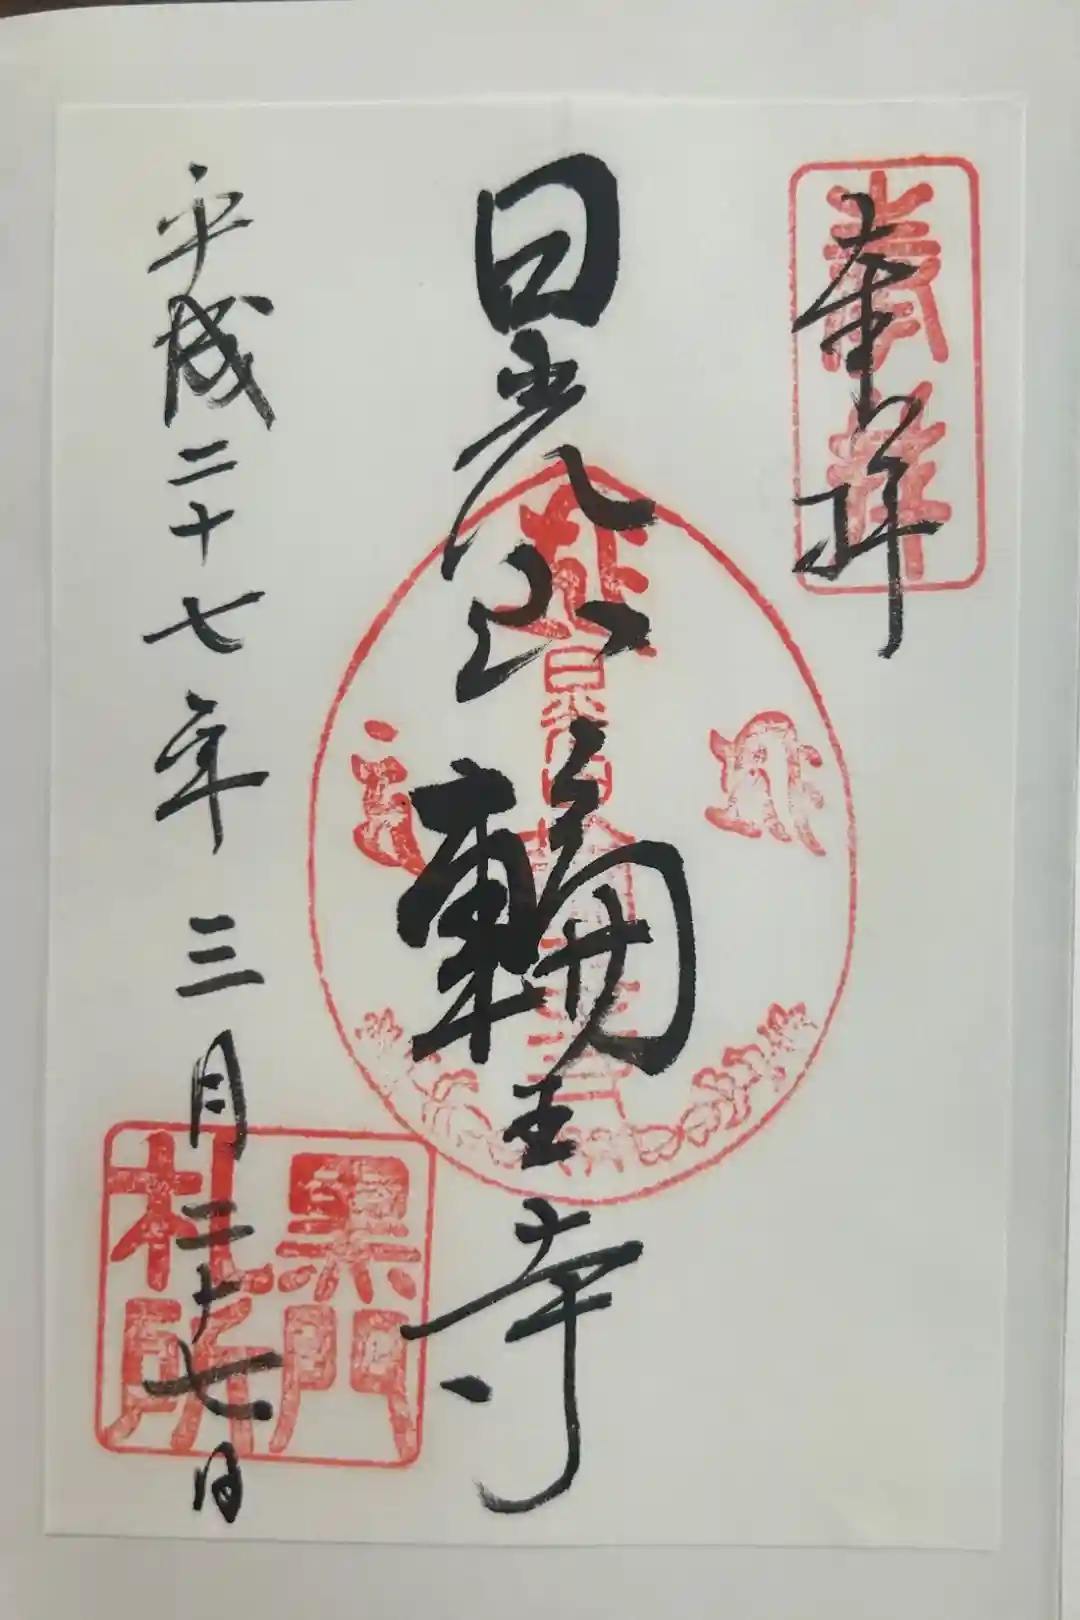 奉拝
奉拝
日光山輪王寺
黒門
札所
平成二十七年三月二十七日